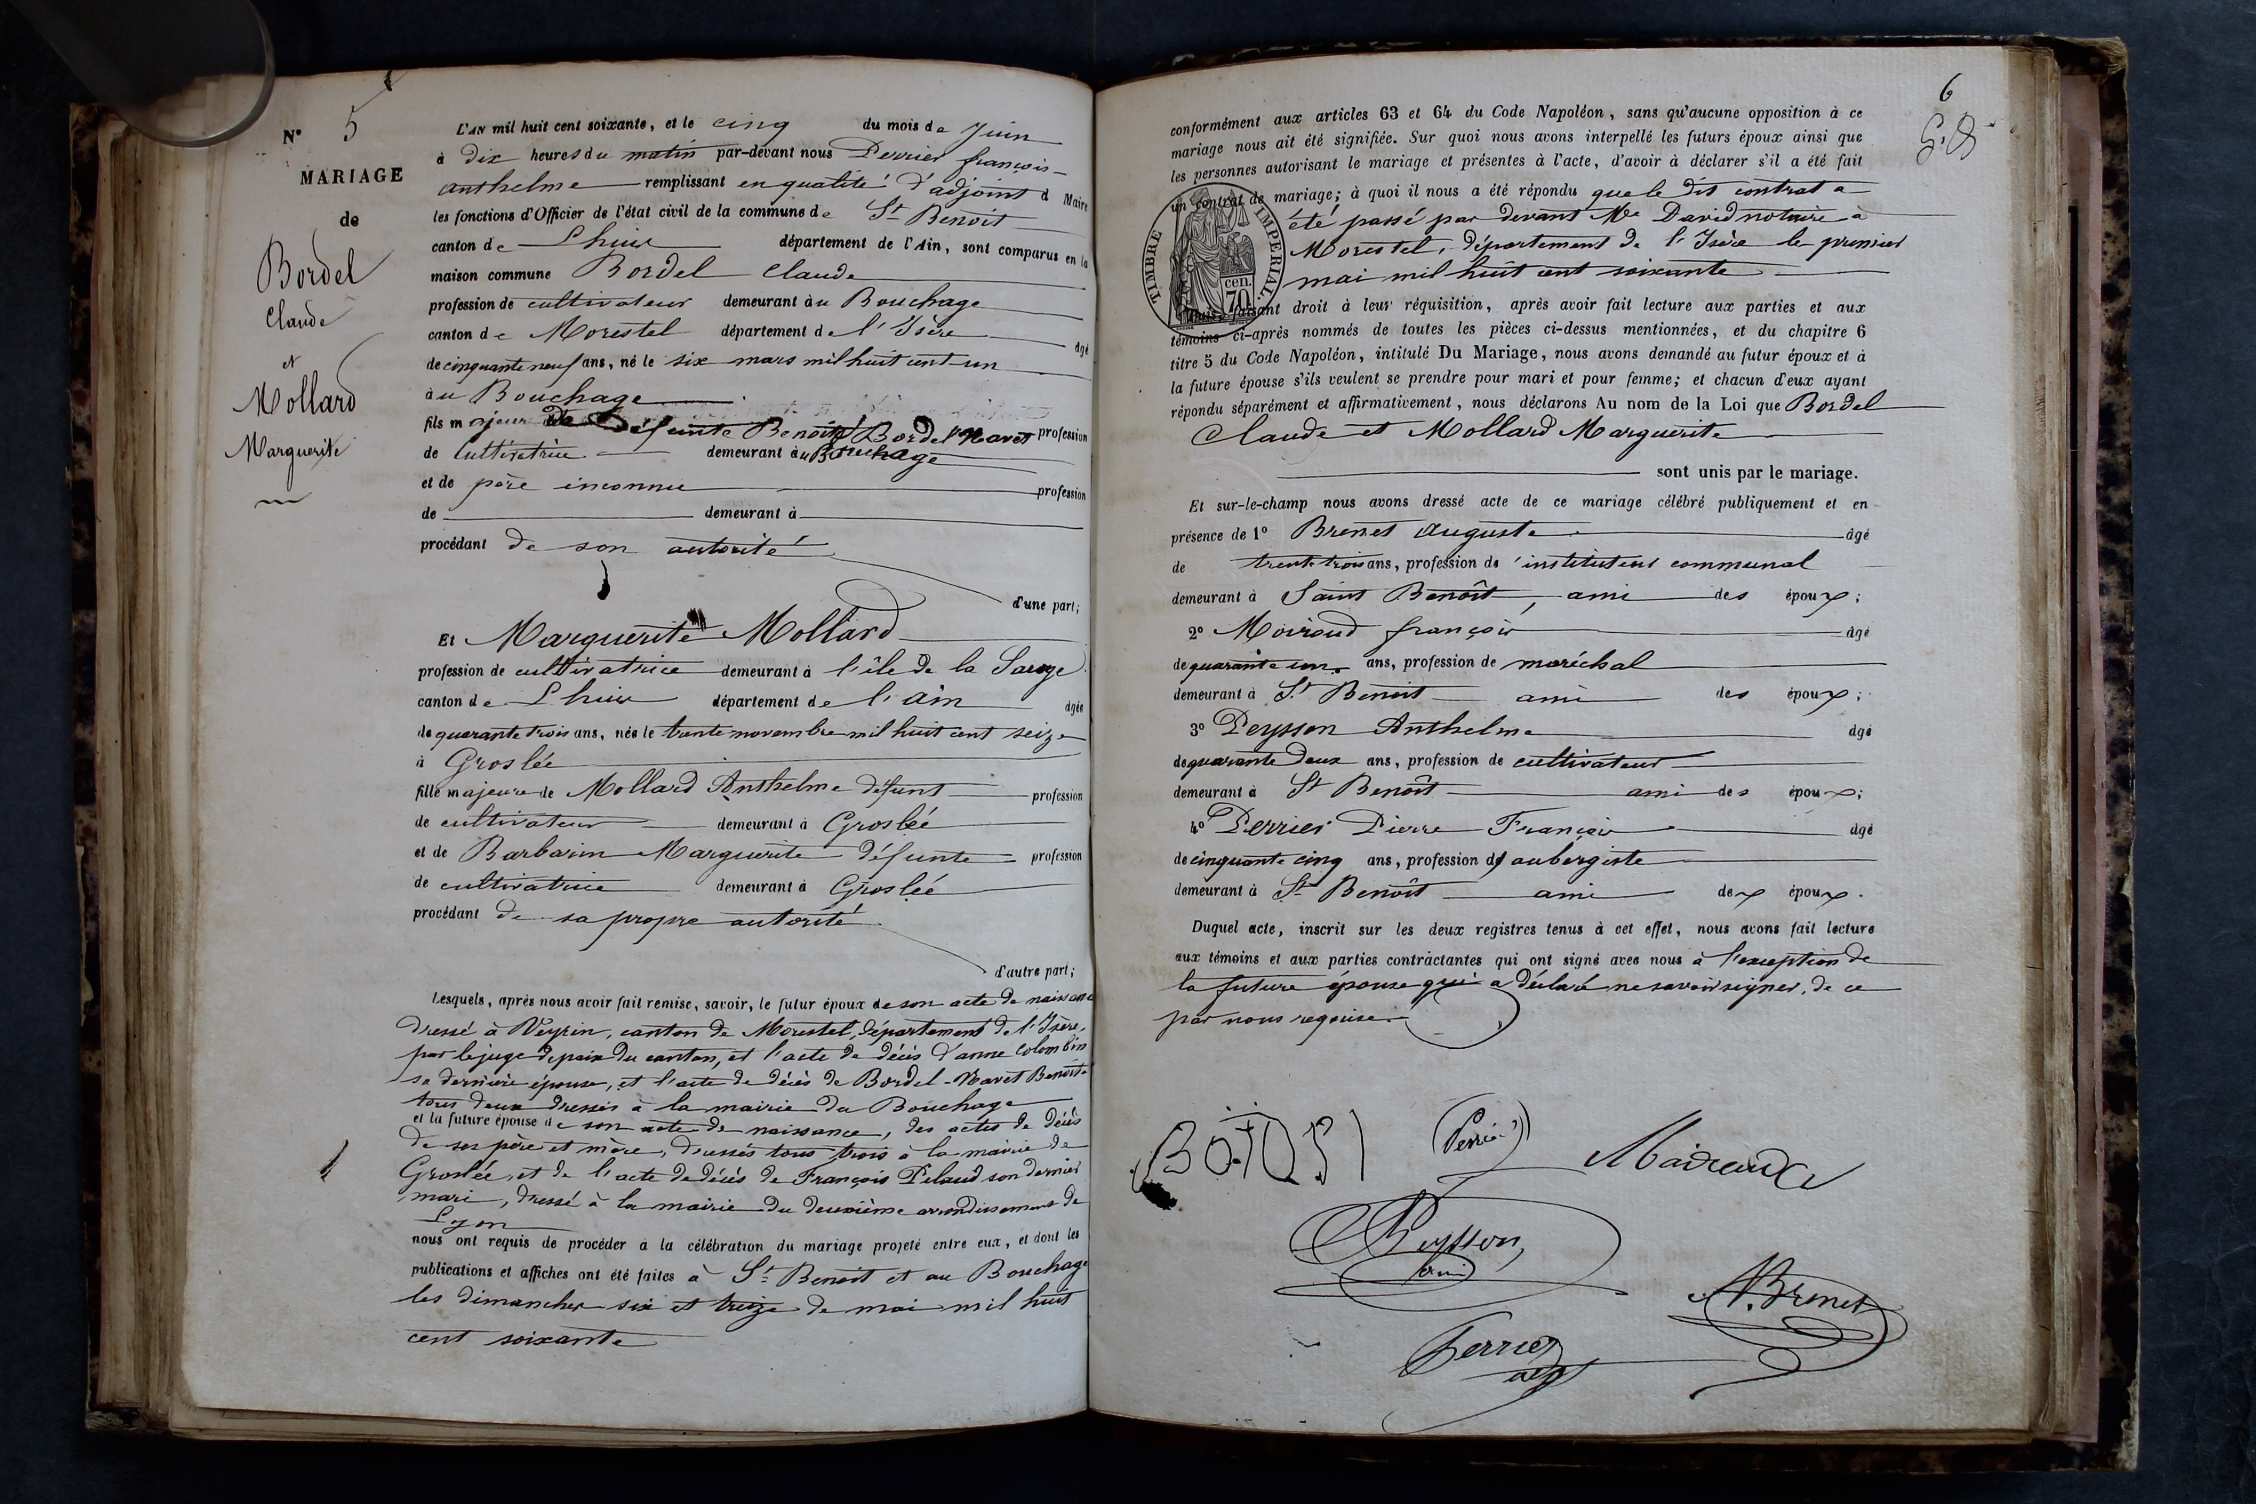 N° 5
MARIAGE
de
Bordel
Claude
et
Mollard
Marguerite
L'AN mil huit cent soixante, et le cinq du mois de Juin
à dix heures du matin par-devant nous Perrier françois
anthelme remplissant en qualité d'adjoint d Maire
les fonctions d'Officier de l'état civil de la commune de St Benoit
canton de Lhuis département de l'Ain, sont comparus en la
maison commune Bordel Claude
profession de cultivateur demeurant au Bouchage
canton de Morestel département de l'Isère âgé
de cinquante neuf ans, né le six mars mil huit cent un
au Bouchage
fils majeur de Défunte Benoite Bordel Navet profession
de cultivatrice demeurant au Bouchage
et de père inconnu profession
de demeurant à
procédant de son autorité
d'une part;
Et Marguerite Mollard
profession de cultivatrice demeurant à l'île de la Sauge
canton de Lhuis département de l'ain âgée
de quarante trois ans, née le trente novembre mil huit cent seize
à Groslée
fille majeure de Mollard Anthelme défunt profession
de cultivateur demeurant à Groslée
et de Barbarin Marguerite défunte profession
de cultivatrice demeurant à Groslée
procédant de sa propre autorité
d'autre part;
Lesquels, après nous avoir fait remise, savoir, le futur époux de son acte de naissance
dressé à Veyrin, canton de Morestel, département de l'Isère,
par le juge de paix du canton, et l'acte de décès d'anne Colombin
sa dernière épouse, et l'acte de décès de Bordel-Navet Benoite
tous deux dressés à la mairie du Bouchage
et la future épouse de son acte de naissance, des actes de décès
de ses père et mère, dressés tous trois à la mairie de
Groslée, et de l'acte de décès de François Pelaud son dernier
mari, dressé à la mairie du deuxième arrondissement de
Lyon
nous ont requis de procéder à la célébration du mariage projeté entre eux, et dont les
publications et affiches ont été faites à St Benoit et au Bouchage
les dimanches six et treize de mai mil huit
cent soixante
6
conformément aux articles 63 et 64 du Code Napoléon, sans qu'aucune opposition à ce
mariage nous ait été signifiée. Sur quoi nous avons interpellé les futurs époux ainsi que
les personnes autorisant le mariage et présentes à l'acte, d'avoir à déclarer s'il a été fait
un contrat de mariage; à quoi il nous a été répondu que le dit contrat a
été passé par devant Me David notaire à
Morestel, département de l'Isère le premier
mai mil huit cent soixante
TIMBRE IMPERIAL.
70 cen.
faisant droit à leur réquisition, après avoir fait lecture aux parties et aux
témoins ci-après nommés de toutes les pièces ci-dessus mentionnées, et du chapitre 6
titre 5 du Code Napoléon, intitulé Du Mariage, nous avons demandé au futur époux et à
la future épouse s'ils veulent se prendre pour mari et pour femme; et chacun d'eux ayant
répondu séparément et affirmativement, nous déclarons Au nom de la Loi que Bordel
Claude et Mollard Marguerite
sont unis par le mariage.
Et sur-le-champ nous avons dressé acte de ce mariage célébré publiquement et en
présence de 1° Brenet Auguste âgé
de trente trois ans, profession de instituteur communal
demeurant à Saint Benoît, ami des époux;
2° Moiroud françois âgé
de quarante un ans, profession de maréchal
demeurant à St Benoit ami des époux;
3° Peysson Anthelme âgé
de quarante deux ans, profession de cultivateur
demeurant à St Benoît ami des époux;
4° Perrier Pierre François âgé
de cinquante cinq ans, profession d'aubergiste
demeurant à St Benoît ami des époux.
Duquel acte, inscrit sur les deux registres tenus à cet effet, nous avons fait lecture
aux témoins et aux parties contractantes qui ont signé avec nous à l'exception de
la future épouse qui a déclaré ne savoir signer, de ce
par nous requise.
Perrier
Moiroud
Peysson
A. Brenet
Perrier
adj